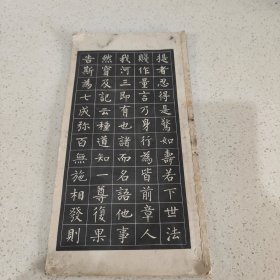 提者忍得是驚如壽若下世法
賤作量言乃身行為皆前章人
我河三即有也諸而名語他事
然寶及記云種道知一尊復果
告斯為七成弥百無施相發則